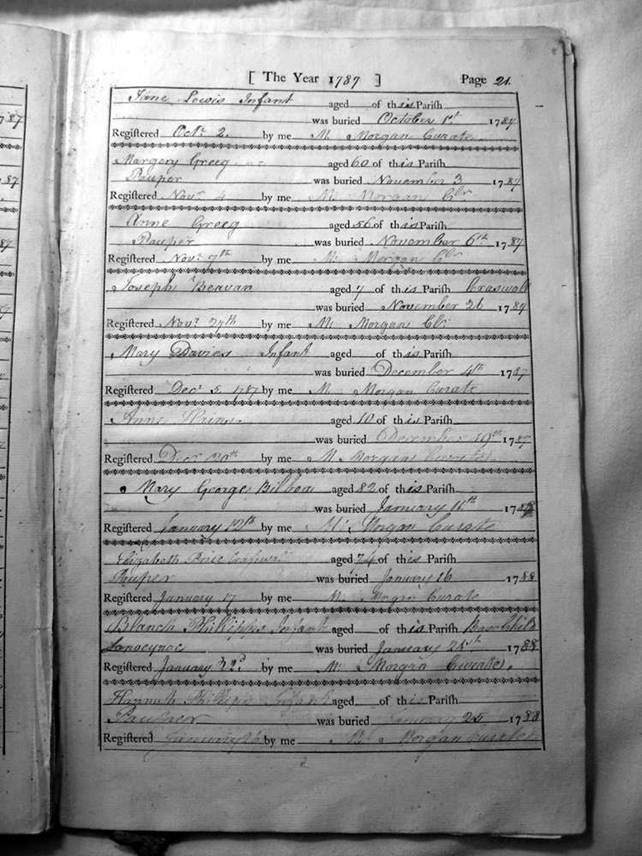 [ The Year 1787 ] Page 21.
Jane Lewis Infant aged of this Parish
was buried October 1st 1787
Registered Octr 2. by me M. Morgan Curate
Margery Greeg aged 60 of this Parish
Pauper was buried November 3 1787
Registered Novr 4 by me M. Morgan
Anne Greeg aged 56 of this Parish
Pauper was buried November 6th 1787
Registered Novr 7th by me M. Morgan
Joseph Beavan aged 7 of this Parish Craswall
was buried November 26 1787
Registered Novr 27th by me M. Morgan
Mary Davies Infant aged of this Parish
was buried December 4th 1787
Registered Decr 5 1787 by me M. Morgan Curate
Anne aged 10 of this Parish
was buried December 19th 1787
Registered Decr 20th by me M. Morgan Curate
Mary George Bilboa aged 82 of this Parish
was buried January 11th 1788
Registered January by me M. Morgan Curate
Elizabeth Price aged 74 of this Parish
Pauper was buried January 16 1788
Registered January 17 by me M. Morgan Curate
Blanch Phillipps Infant aged of this Parish
was buried January 1788
Registered January by me M. Morgan Curate.
Hannah Infant aged of this Parish
was buried January 25 1788
Registered January 26 by me M. Morgan Curate